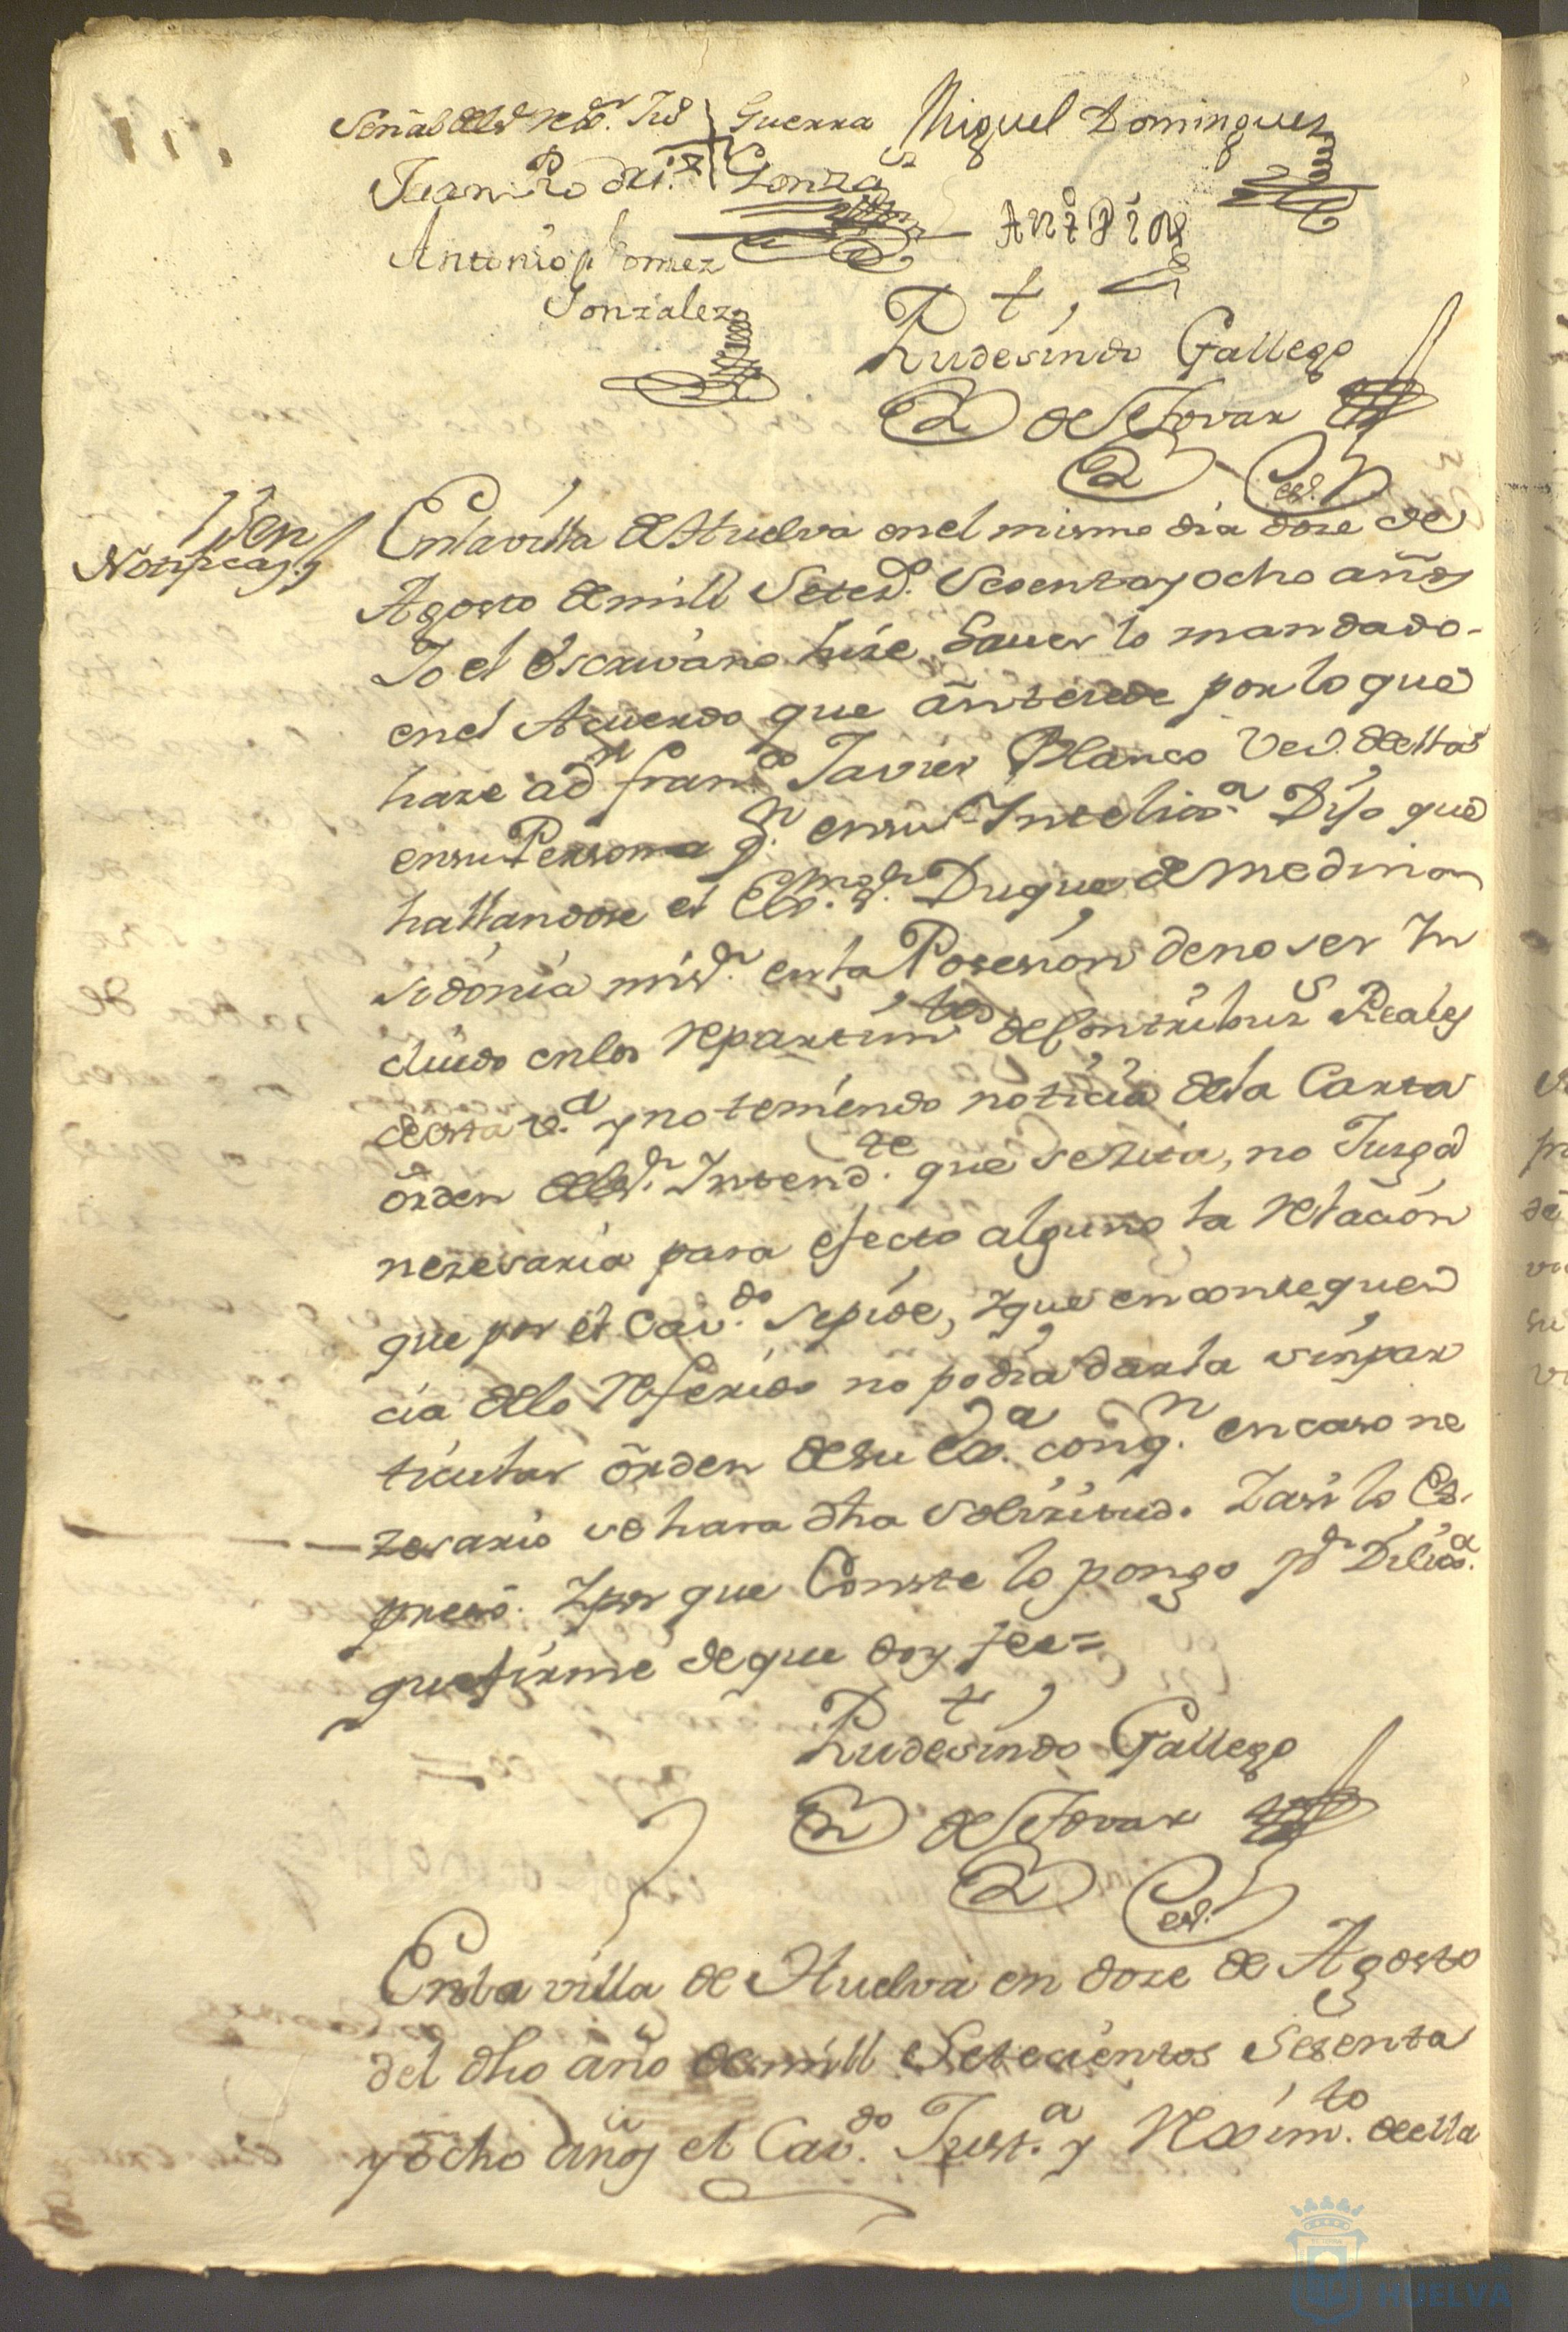 Señal del Sr. Rexor. Jud + Guerra Miguel Dominguez
Juan Rodri.z Gonza.z
Antt.o Diaz
Antonio Gomez
Gonzalez
Rudesindo Gallego
de Tovar
Esno.
Iden
Notificaz.n
En la villa de Huelva en el mismo dia doze de
Agosto de mill Setezs. Sesenta y ocho años
Yo el Escrivano hize Sauer lo mandado
en el Acuerdo que antezede por lo que
haze a Dn. Fran.co Javier Blanco Vez.o de ella
en su Persona q.n en su Inteliga. Dijo que
hallandose el Exmo. Sr. Duque de Medina
sidonia mi Sr. en la Posesion de no ser In
cluido en los repartim.tos de Contribuz.s Reales
de esta v.a y no teniendo noticia de la Carta
orden del Sr. Intend.te que se zita, no Juzga
nezesaria para efecto alguno la relacion
que por el Cav.do se pide, y que en consequen
cia de lo referido no podia darla sin par
ticular orden de su Ex.a con q.n en caso ne
zesario se hara dha solizitud. Y asi lo Ex
preso. Y por que Conste lo pongo p.r Dilig.a
que firme de que doy fee =
Rudesindo Gallego
de Tovar
Esno.
En la villa de Huelva en doze de Agosto
del dho año de mill Setecientos Sesenta
y ocho años el Cav.do Just.a y Rexim.to de ella
HUELVA